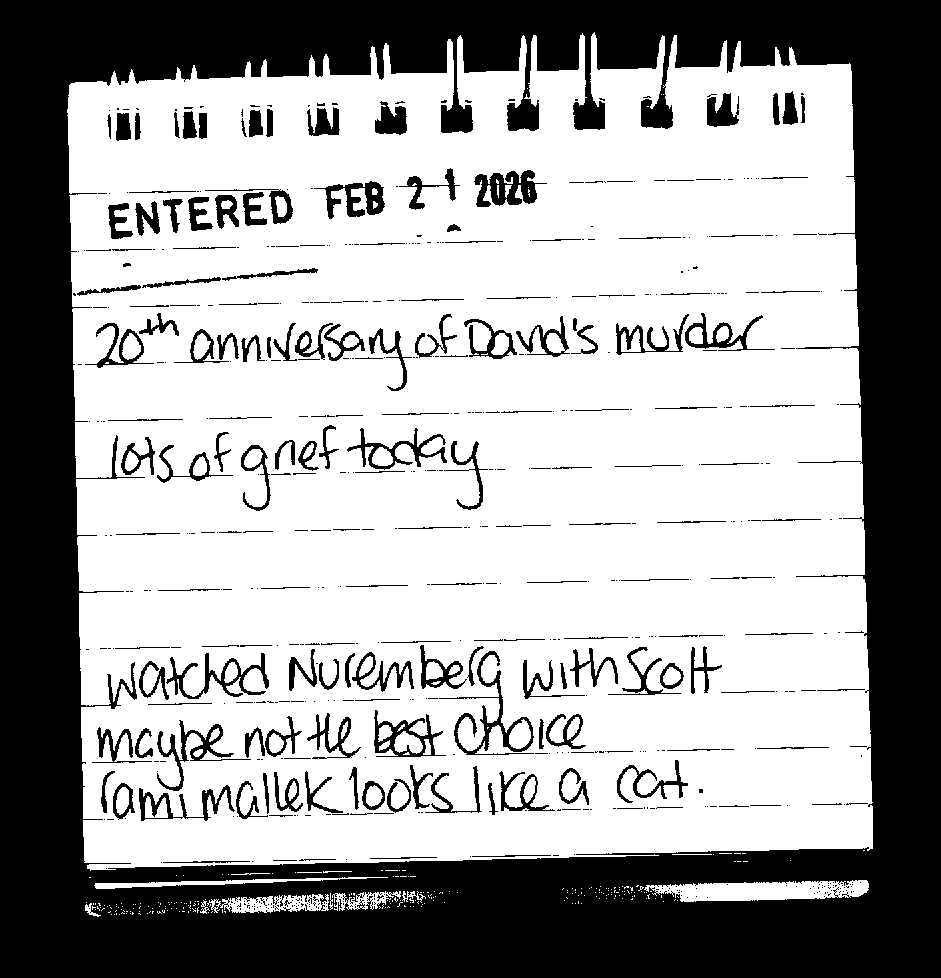 ENTERED FEB 21 2026
20th anniversary of David's murder
lots of grief today
watched Nuremberg with Scott
maybe not the best choice
rami mallek looks like a cat.